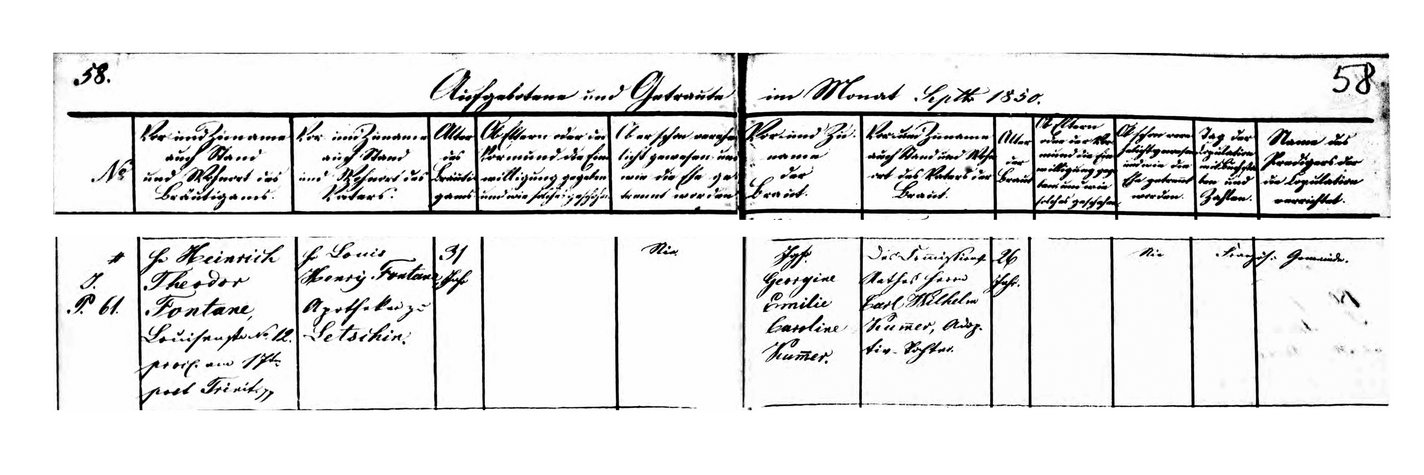 58.
58
Aufgebotene und Getraute im Monat Septbr 1850.
No
Vor und Zuname
auch Stand
und Wohnort des
Bräutigams.
Vor und Zuname
auch Stand
und Wohnort des
Vaters.
Alter
des
Bräuti-
gams
Ob Eltern oder der
Vormund die Ein-
willigung gegeben
und wie solche geschehen
Ob er schon vereh-
licht gewesen und
wie die Ehe ge-
trennt worden
Vor und Zu-
name
der
Braut.
Vor und Zuname
auch Stand und Wohn-
ort des Vaters der
Braut.
Alter
der
Braut
Ob Eltern
oder der Vor-
mund die Ein-
willigung gege-
ben und wie
solches geschehen
Ob schon vere-
helicht gewesen
und wie die
Ehe getrennt
worden.
Tag der
Copulation
mit Buchsta-
ben und
Zahlen.
Name des
Predigers der
die Copulation
verrichtet.
#
J.
P. 61.
H. Heinrich
Theodor
Fontane,
Louisenstr No 12.
procl. am 17ten
post Trinit.
H. Louis
Henry Fontane
Apotheker zu
Letschin.
31
Jahr
Nie.
Jgfr.
Georgine
Emilie
Caroline
Kummer.
Des Commissions-
Rathes Herrn
Carl Wilhelm
Kummer, Adop-
tiv-Tochter.
26
Jahr.
Nie
Französ. Gemeinde.